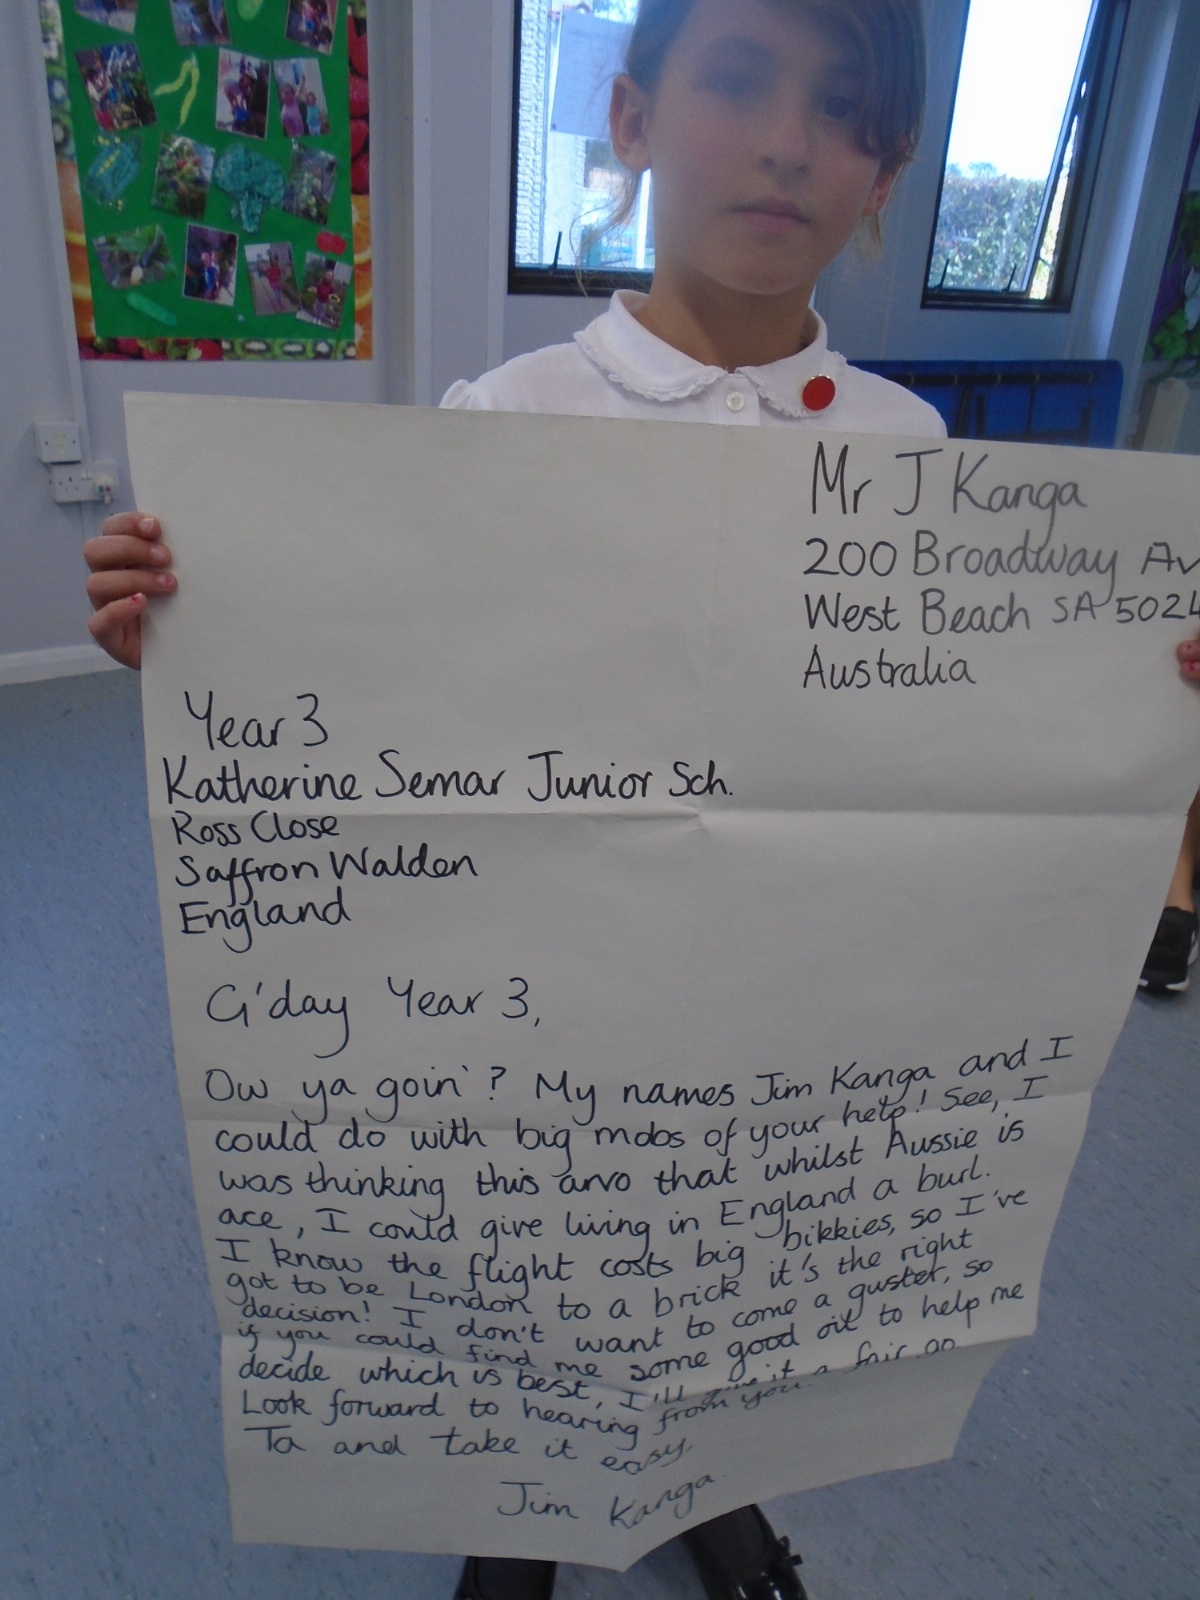 Mr J Kanga
200 Broadway Av
West Beach SA 5024
Australia
Year 3
Katherine Semar Junior Sch.
Ross Close
Saffron Walden
England
G'day Year 3,
Ow ya goin'? My names Jim Kanga and I
could do with big mobs of your help! See, I
was thinking this arvo that whilst Aussie is
ace, I could give living in England a burl.
I know the flight costs big bikkies, so I've
got to be London to a brick it's the right
decision! I don't want to come a guster, so
if you could find me some good oil to help me
decide which is best, I'll give it a fair go.
Look forward to hearing from you.
Ta and take it easy,
Jim Kanga.